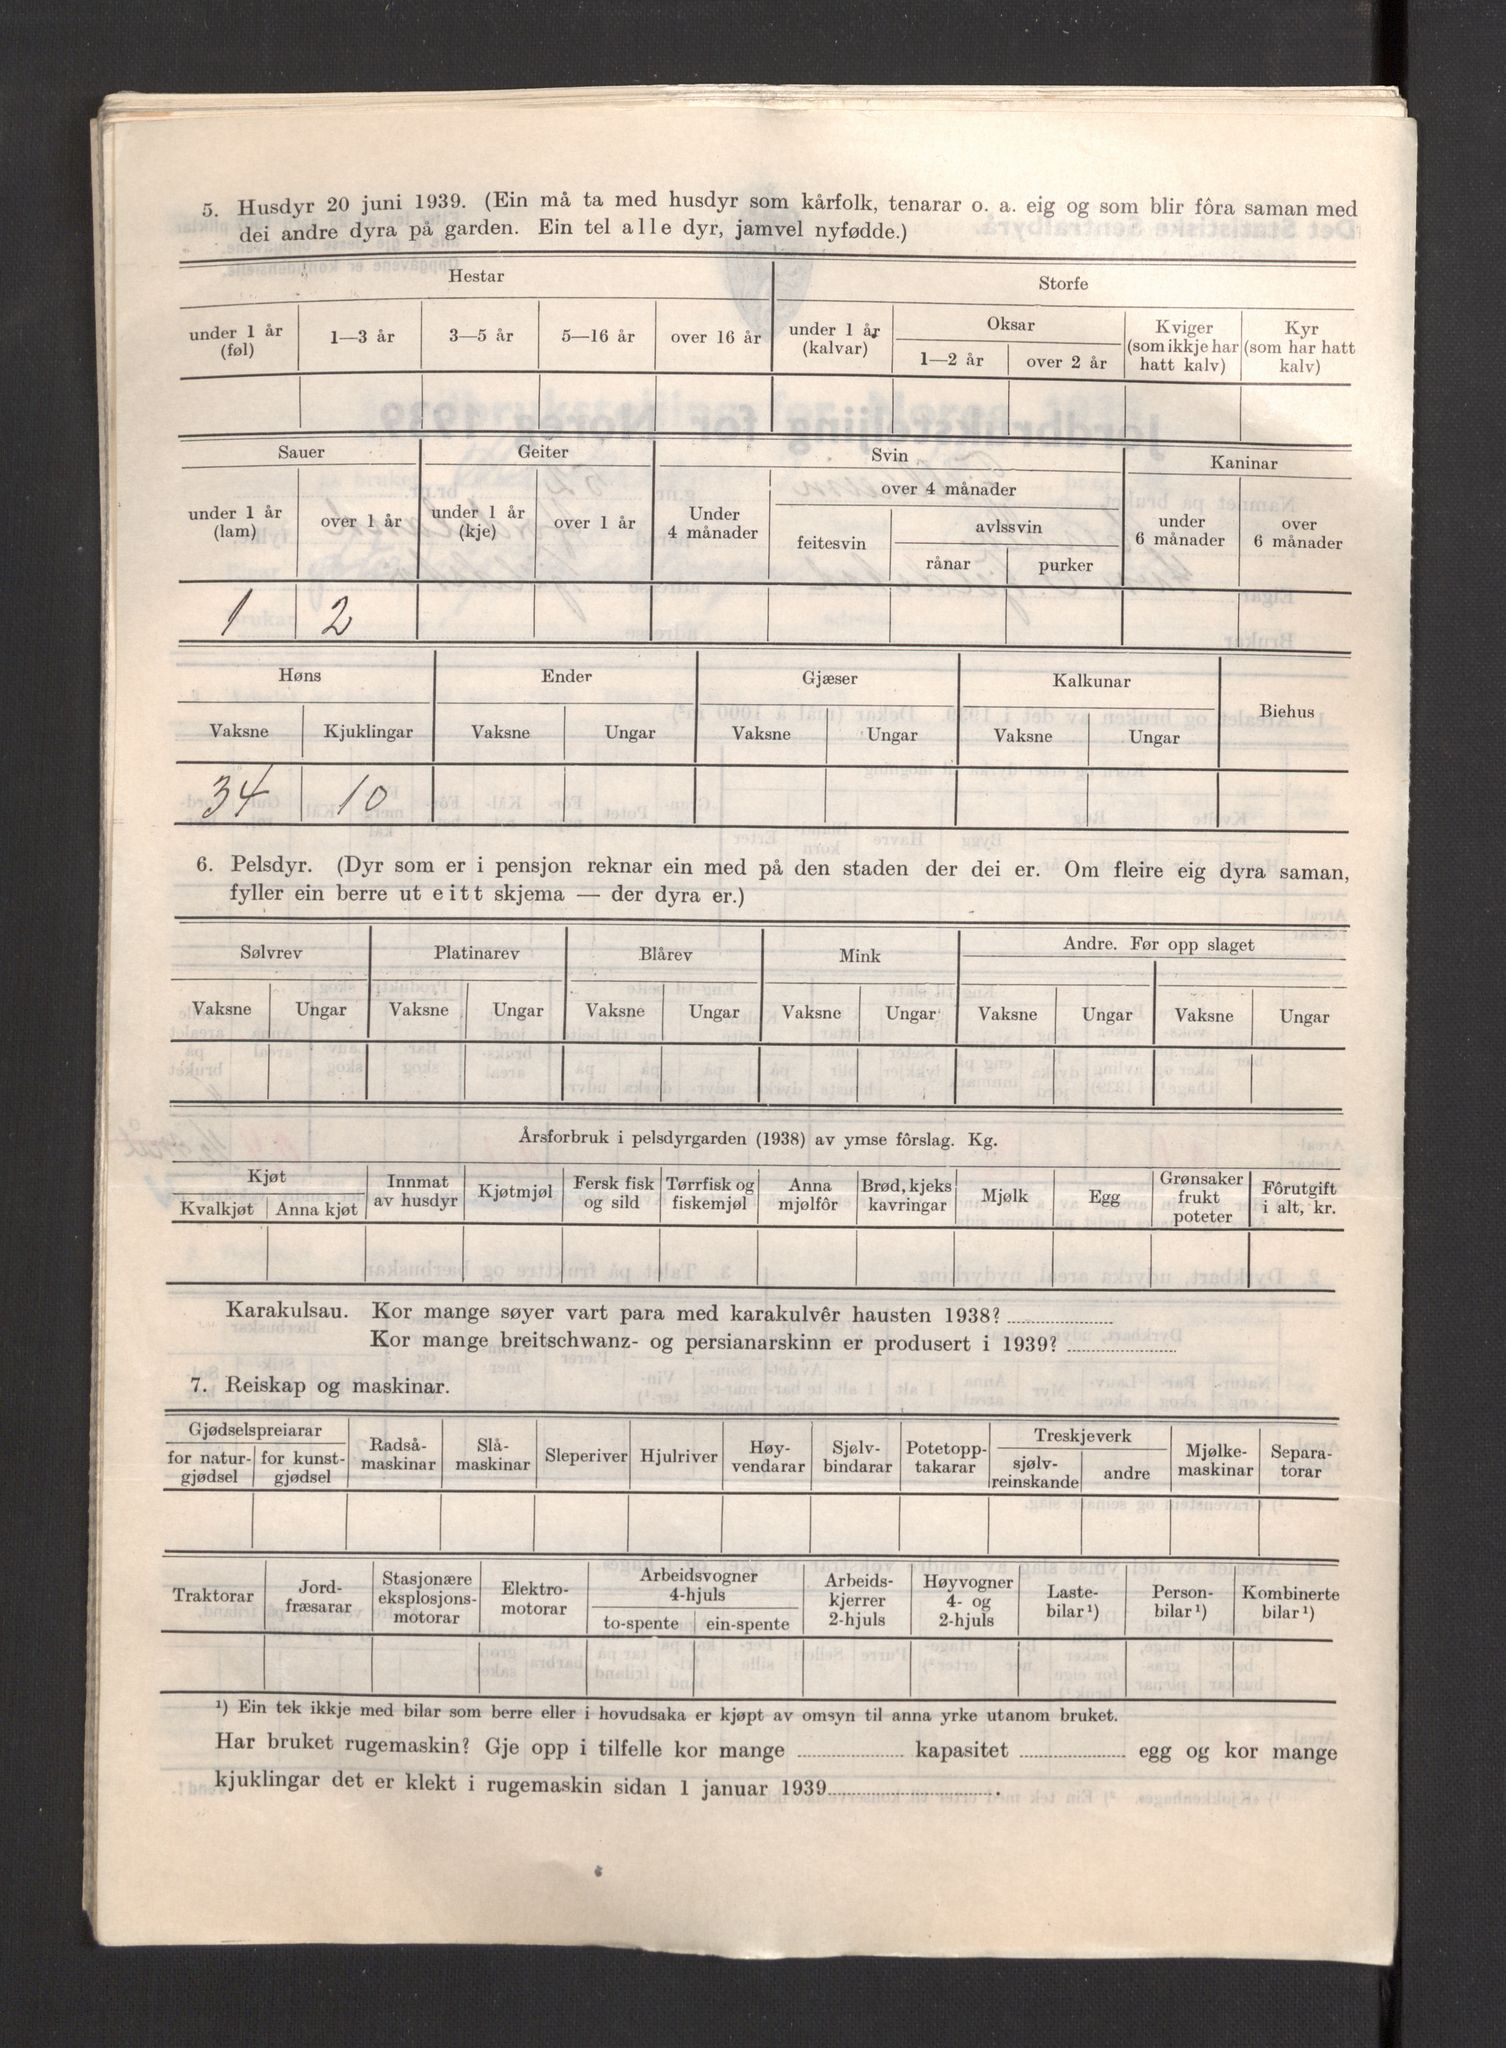 5. Husdyr 20 juni 1939. (Ein må ta med husdyr som kårfolk, tenarar o. a. eig og som blir fôra saman med
dei andre dyra på garden. Ein tel alle dyr, jamvel nyfødde.)
Hestar Storfe
under 1 år (føl) 1—3 år 3—5 år 5—16 år over 16 år under 1 år (kalvar) Oksar 1—2 år over 2 år Kviger (som ikkje har hatt kalv) Kyr (som har hatt kalv)
Sauer Geiter Svin Kaninar
under 1 år (lam) over 1 år under 1 år (kje) over 1 år Under 4 månader over 4 månader feitesvin avlssvin rånar purker under 6 månader over 6 månader
1 2
Høns Ender Gjæser Kalkunar Biehus
Vaksne Kjuklingar Vaksne Ungar Vaksne Ungar Vaksne Ungar
34 10
6. Pelsdyr. (Dyr som er i pensjon reknar ein med på den staden der dei er. Om fleire eig dyra saman,
fyller ein berre ut eitt skjema — der dyra er.)
Sølvrev Platinarev Blårev Mink Andre. Før opp slaget
Vaksne Ungar Vaksne Ungar Vaksne Ungar Vaksne Ungar Vaksne Ungar Vaksne Ungar
Årsforbruk i pelsdyrgarden (1938) av ymse fôrslag. Kg.
Kjøt Kvalkjøt Anna kjøt Innmat av husdyr Kjøtmjøl Fersk fisk og sild Tørrfisk og fiskemjøl Anna mjølfôr Brød, kjeks kavringar Mjølk Egg Grønsaker frukt poteter Fôrutgift i alt, kr.
Karakulsau. Kor mange søyer vart para med karakulvêr hausten 1938?
Kor mange breitschwanz- og persianarskinn er produsert i 1939?
7. Reiskap og maskinar.
Gjødselspreiarar for natur-gjødsel for kunst-gjødsel Radså-maskinar Slå-maskinar Sleperiver Hjulriver Høy-vendarar Sjølv-bindarar Potetopp-takarar Treskjeverk sjølv-reinskande andre Mjølke-maskinar Separa-torar
Traktorar Jord-fræsarar Stasjonære eksplosjons-motorar Elektro-motorar Arbeidsvogner 4-hjuls to-spente ein-spente Arbeids-kjerrer 2-hjuls Høyvogner 4- og 2-hjuls Laste-bilar ¹) Person-bilar ¹) Kombinerte bilar ¹)
¹) Ein tek ikkje med bilar som berre eller i hovudsaka er kjøpt av omsyn til anna yrke utanom bruket.
Har bruket rugemaskin? Gje opp i tilfelle kor mange kapasitet egg og kor mange
kjuklingar det er klekt i rugemaskin sidan 1 januar 1939.